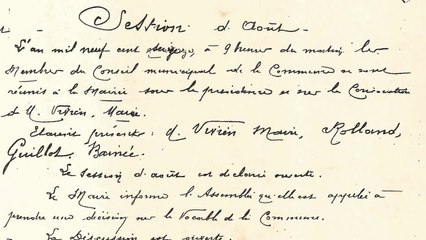 Session d'Août
L'an mil neuf cent à 9 heures du matin les
Membres du Conseil municipal de la Commune se sont
réunis à la Mairie sous la présidence et sur la Convocation
d M. Vivien, Maire.
Etaient présents : M. Vivien Maire, Rolland,
Guillot, Barrée.
La session d'août est déclarée ouverte.
Le Maire informe l'Assemblée qu'elle est appelée à
prendre une décision sur le Vocable de la Commune.
La Discussion est ouverte.